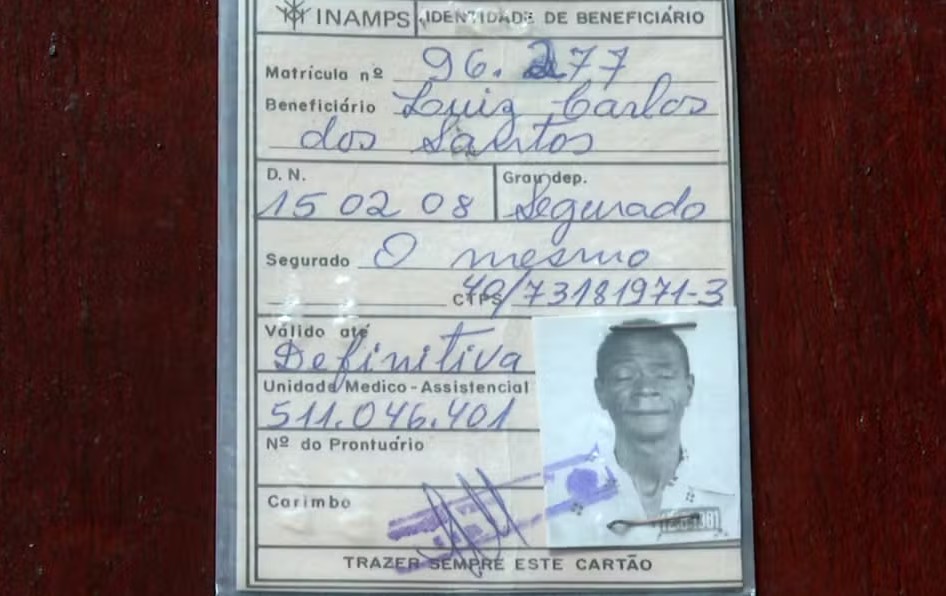 INAMPS IDENTIDADE DE BENEFICIÁRIO
Matrícula nº 96.277
Beneficiário Luiz Carlos
dos Santos
D. N. Grau dep.
15 02 08 Segurado
Segurado O mesmo
CTPS 40/73181971-3
Válido até
Definitiva
Unidade Medico-Assistencial
511.046.401
Nº do Prontuário
Carimbo
TRAZER SEMPRE ESTE CARTÃO